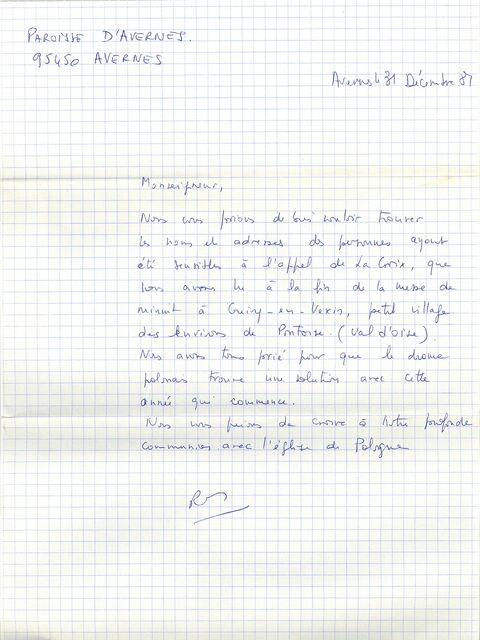 PAROISSE D'AVERNES.
95450 AVERNES
Avernes le 31 Décembre 81
Monseigneur,
Nous vous prions de bien vouloir trouver
les noms et adresses des personnes ayant
été sensibles à l'appel de La Croix, que
nous avons lu à la fin de la messe de
minuit à Guiry-en-Vexin, petit village
des environs de Pontoise. (Val d'Oise).
Nous avons tous prié pour que le drame
polonais trouve une solution avec cette
année qui commence.
Nous vous prions de croire à notre profonde
communion avec l'église de Pologne